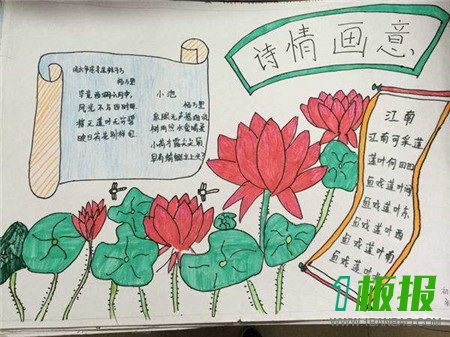 诗情画意
晓出净慈寺送林子方
杨万里
毕竟西湖六月中，
风光不与四时同
接天莲叶无穷碧
映日荷花别样红
小池
杨万里
泉眼无声惜细流
树阴照水爱晴柔
小荷才露尖尖角
早有蜻蜓立上头
江南
江南可采莲
莲叶何田田
鱼戏莲叶间
鱼戏莲叶东
鱼戏莲叶西
鱼戏莲叶南
鱼戏莲叶
1板报